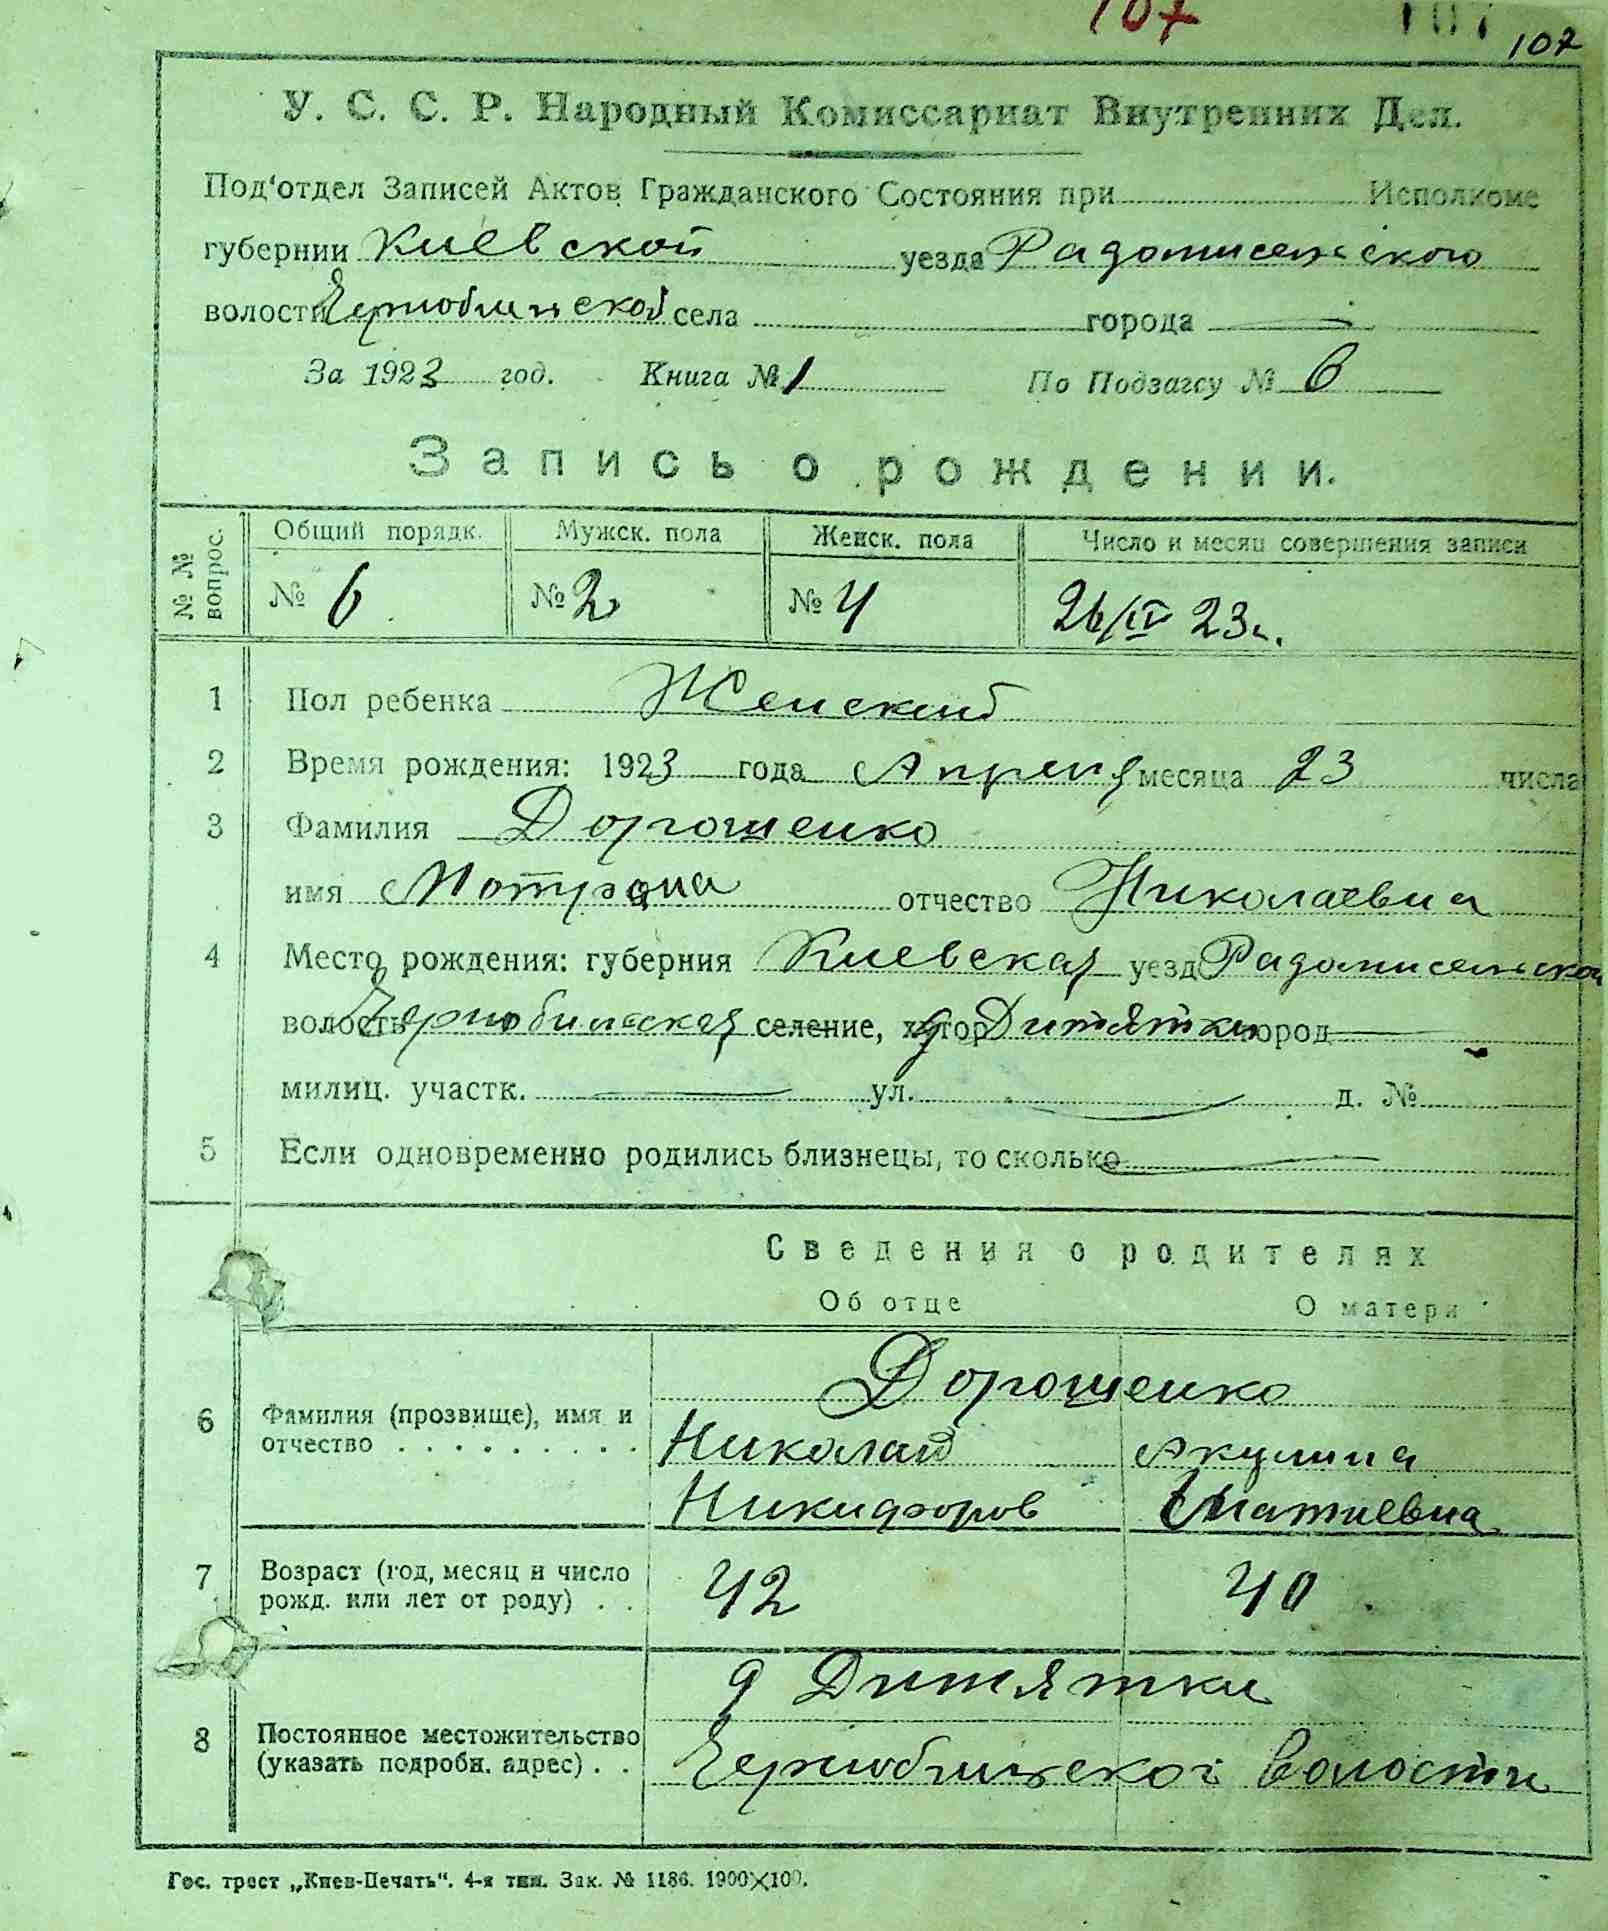 107
107
107
У. С. С. Р. Народный Комиссариат Внутренних Дел.
Под'отдел Записей Актов Гражданского Состояния при Исполкоме
губернии Киевской уезда Радомисельского
волости Чернобильской села города
За 1923 год. Книга № 1 По Подзагсу № 6
Запись о рождении.
№№ вопрос. Общий порядк. Мужск. пола Женск. пола Число и месяц совершения записи
№ 6 № 2 № 4 26/IV 23г.
1 Пол ребенка Женский
2 Время рождения: 1923 года Апреля месяца 23 числа
3 Фамилия Дорошенко
имя Мотрона отчество Николаевна
4 Место рождения: губерния Киевская уезд Радомисельской
волость Чернобильская селение, хутор д Дитятки город
милиц. участк. ул. д. №
5 Если одновременно родились близнецы, то сколько
Сведения о родителях
Об отце О матери
Дорошенко
6 Фамилия (прозвище), имя и Николай Акулина
отчество . . . . . . . . . Никифоров Игнатиевна
7 Возраст (год, месяц и число 42 40
рожд. или лет от роду) . .
д Дитятки
8 Постоянное местожительство
(указать подробн. адрес) . . Чернобильской волости
Гос. трест „Киев-Печать“. 4-я тип. Зак. № 1186. 1900×100.